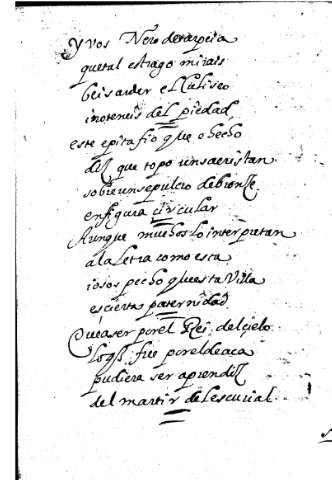 Y vos Nero de tarpeia
que tal estrago mirais
beis arder el Culiseo
i no teneis del piedad
este epitafio que e hecho
del que topo un sacristan
sobre un sepulcro de bronce
en figura circular
Aunque muchos lo interpretan
a la letra como esta
io sospecho que esta Villa
es cierta paternidad
Quiça ser por el Rei del cielo
lo q̃ fue por el de aca
pudiera ser aprendiz
del martir del escurial